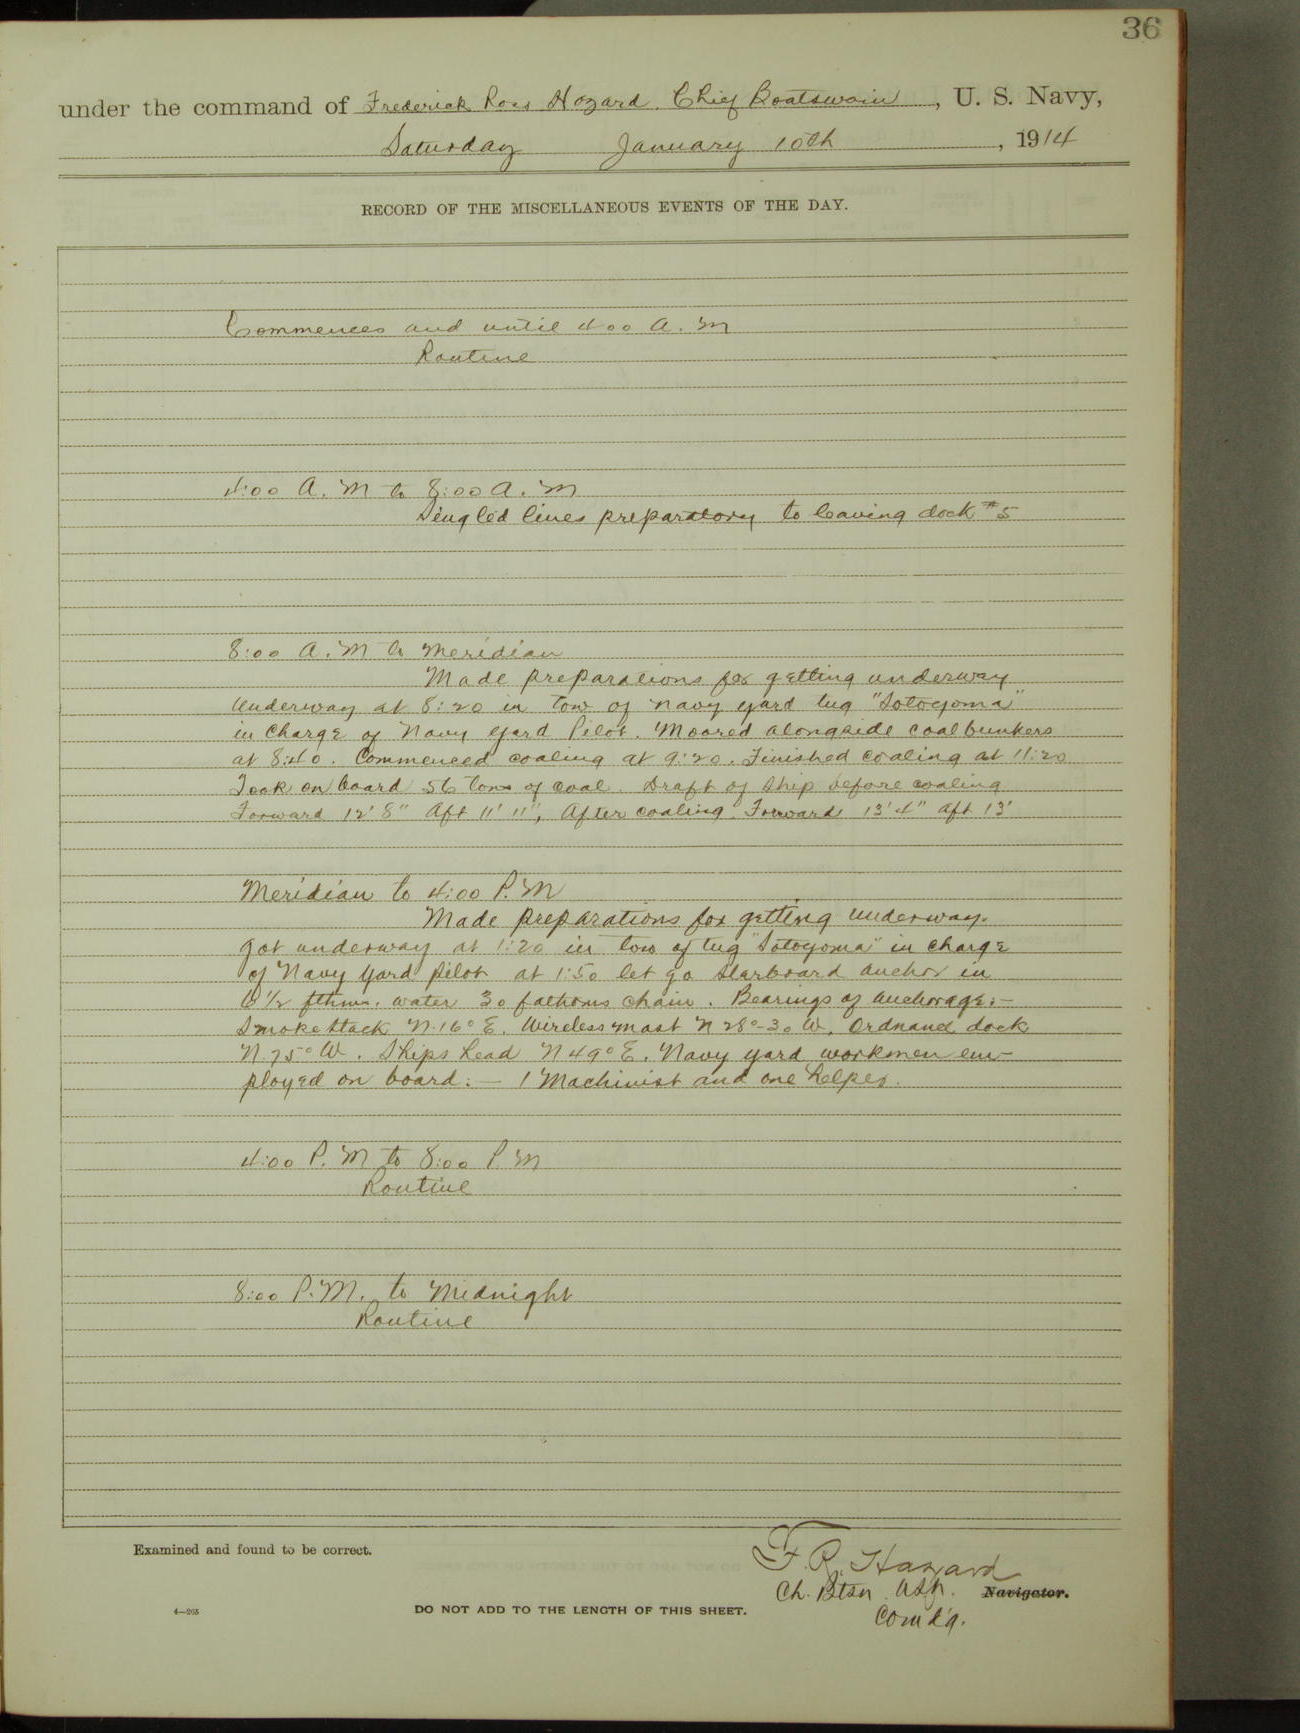 36
under the command of Frederick Ross Hazard. Chief Boatswain, U. S. Navy,
Saturday January 10th, 1914
RECORD OF THE MISCELLANEOUS EVENTS OF THE DAY.
Commences and until 4:00 A.M
Routine
4:00 A.M to 8:00 A.M
Singled lines preparatory to leaving dock #5
8:00 A.M to Meridian
Made preparations for getting underway
Underway at 8:20 in tow of navy yard tug "Sotoyoma"
in charge of Navy Yard Pilot. Moored alongside coalbunkers
at 8:40. Commenced coaling at 9:20. Finished coaling at 11:20
Took on board 56 tons of coal. Draft of ship before coaling
Forward 12' 8" Aft 11' 11", After coaling. Forward 13' 4" aft 13'
Meridian to 4:00 P.M
Made preparations for getting underway.
Got underway at 1:20 in tow of tug "Sotoyoma" in charge
of Navy Yard pilot at 1:50 let go starboard anchor in
6 1/2 fthms. water 30 fathoms chain. Bearings of anchorage:-
Smokestack N 16° E. Wireless mast N 28°-30 W. Ordnance dock
N 75° W. Ships head N 49° E. Navy yard workmen em-
ployed on board:- 1 Machinist and one helper.
4:00 P.M to 8:00 P.M
Routine
8:00 P.M. to Midnight
Routine
Examined and found to be correct.
F. R. Hazard
Ch. Btsn. USN. Navigator.
Com'd'g.
4—265
DO NOT ADD TO THE LENGTH OF THIS SHEET.